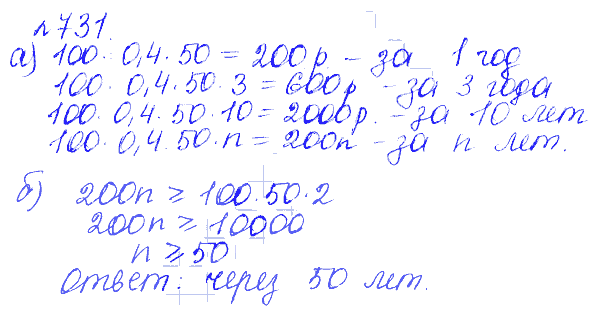 №731.
а) 100 · 0,4 · 50 = 200р – за 1 год
100 · 0,4 · 50 · 3 = 600р – за 3 года
100 · 0,4 · 50 · 10 = 2000р. – за 10 лет
100 · 0,4 · 50 · n = 200n – за n лет.
б) 200n ≥ 100 · 50 · 2
200n ≥ 10000
n ≥ 50
Ответ: через 50 лет.